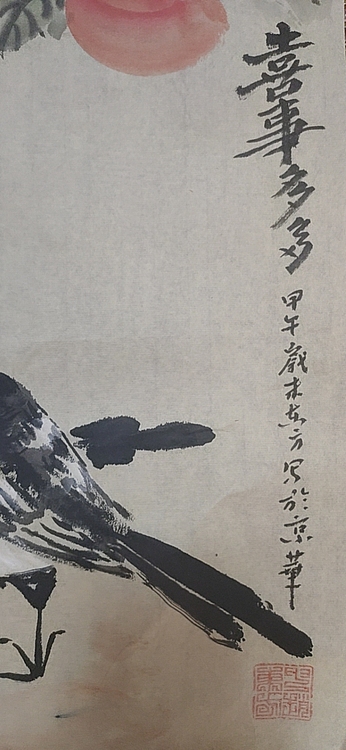 喜事多多
甲午歲末東方寫於京華